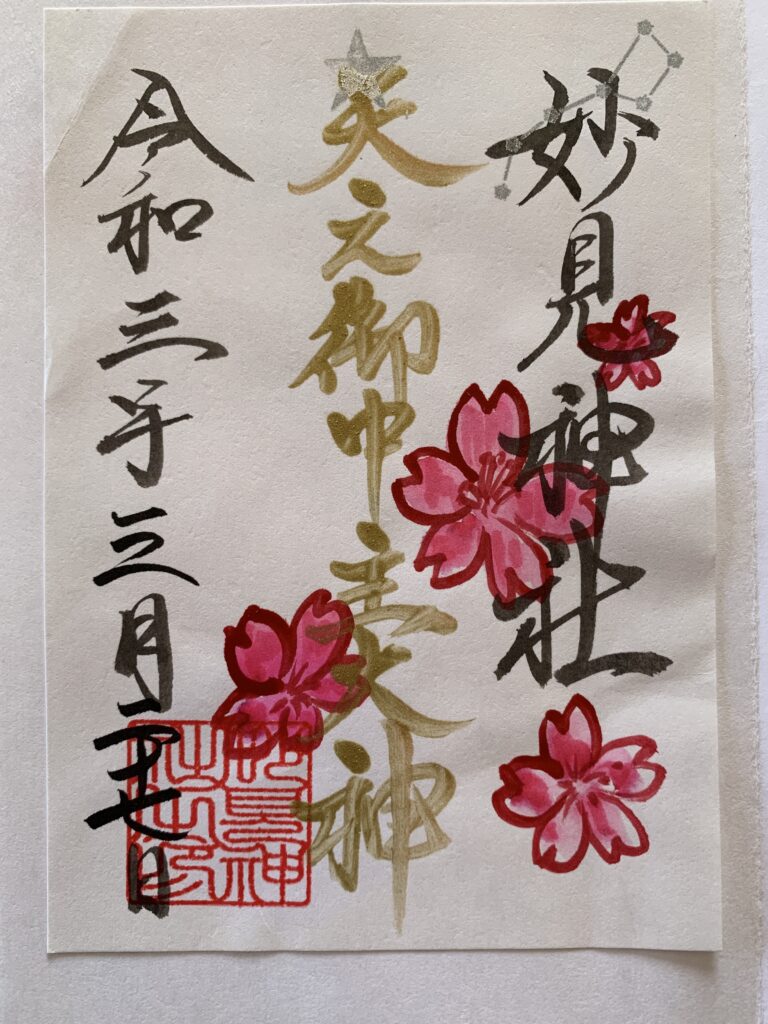 妙見神社
天之御中主大神
令和三年三月二十七日
妙見神
社之印